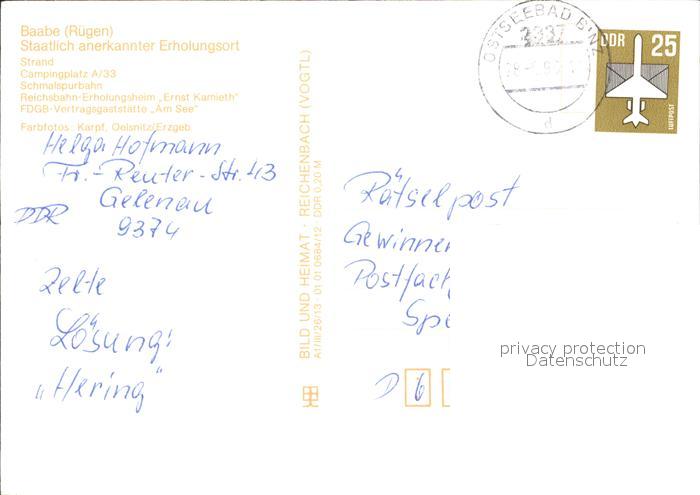 Baabe (Rügen)
Staatlich anerkannter Erholungsort
Strand
Campingplatz A/33
Schmalspurbahn
Reichsbahn-Erholungsheim „Ernst Kamieth"
FDGB-Vertragsgaststätte „Am See"
Farbfotos: Karpf, Oelsnitz/Erzgeb.
Helga Hofmann
Fr.-Reuter-Str. 43
Gelenau
DDR
9374
Zelte
Lösung:
„Hering"
BILD UND HEIMAT · REICHENBACH (VOGTL)
A1/III/26/13 · 01 01 0684/12 · DDR 0,20 M
OSTSEEBAD BINZ
2337
d
DDR 25
LUFTPOST
Rätselpost
Gewinner
Postfach
Spe
D 6
privacy protection
Datenschutz